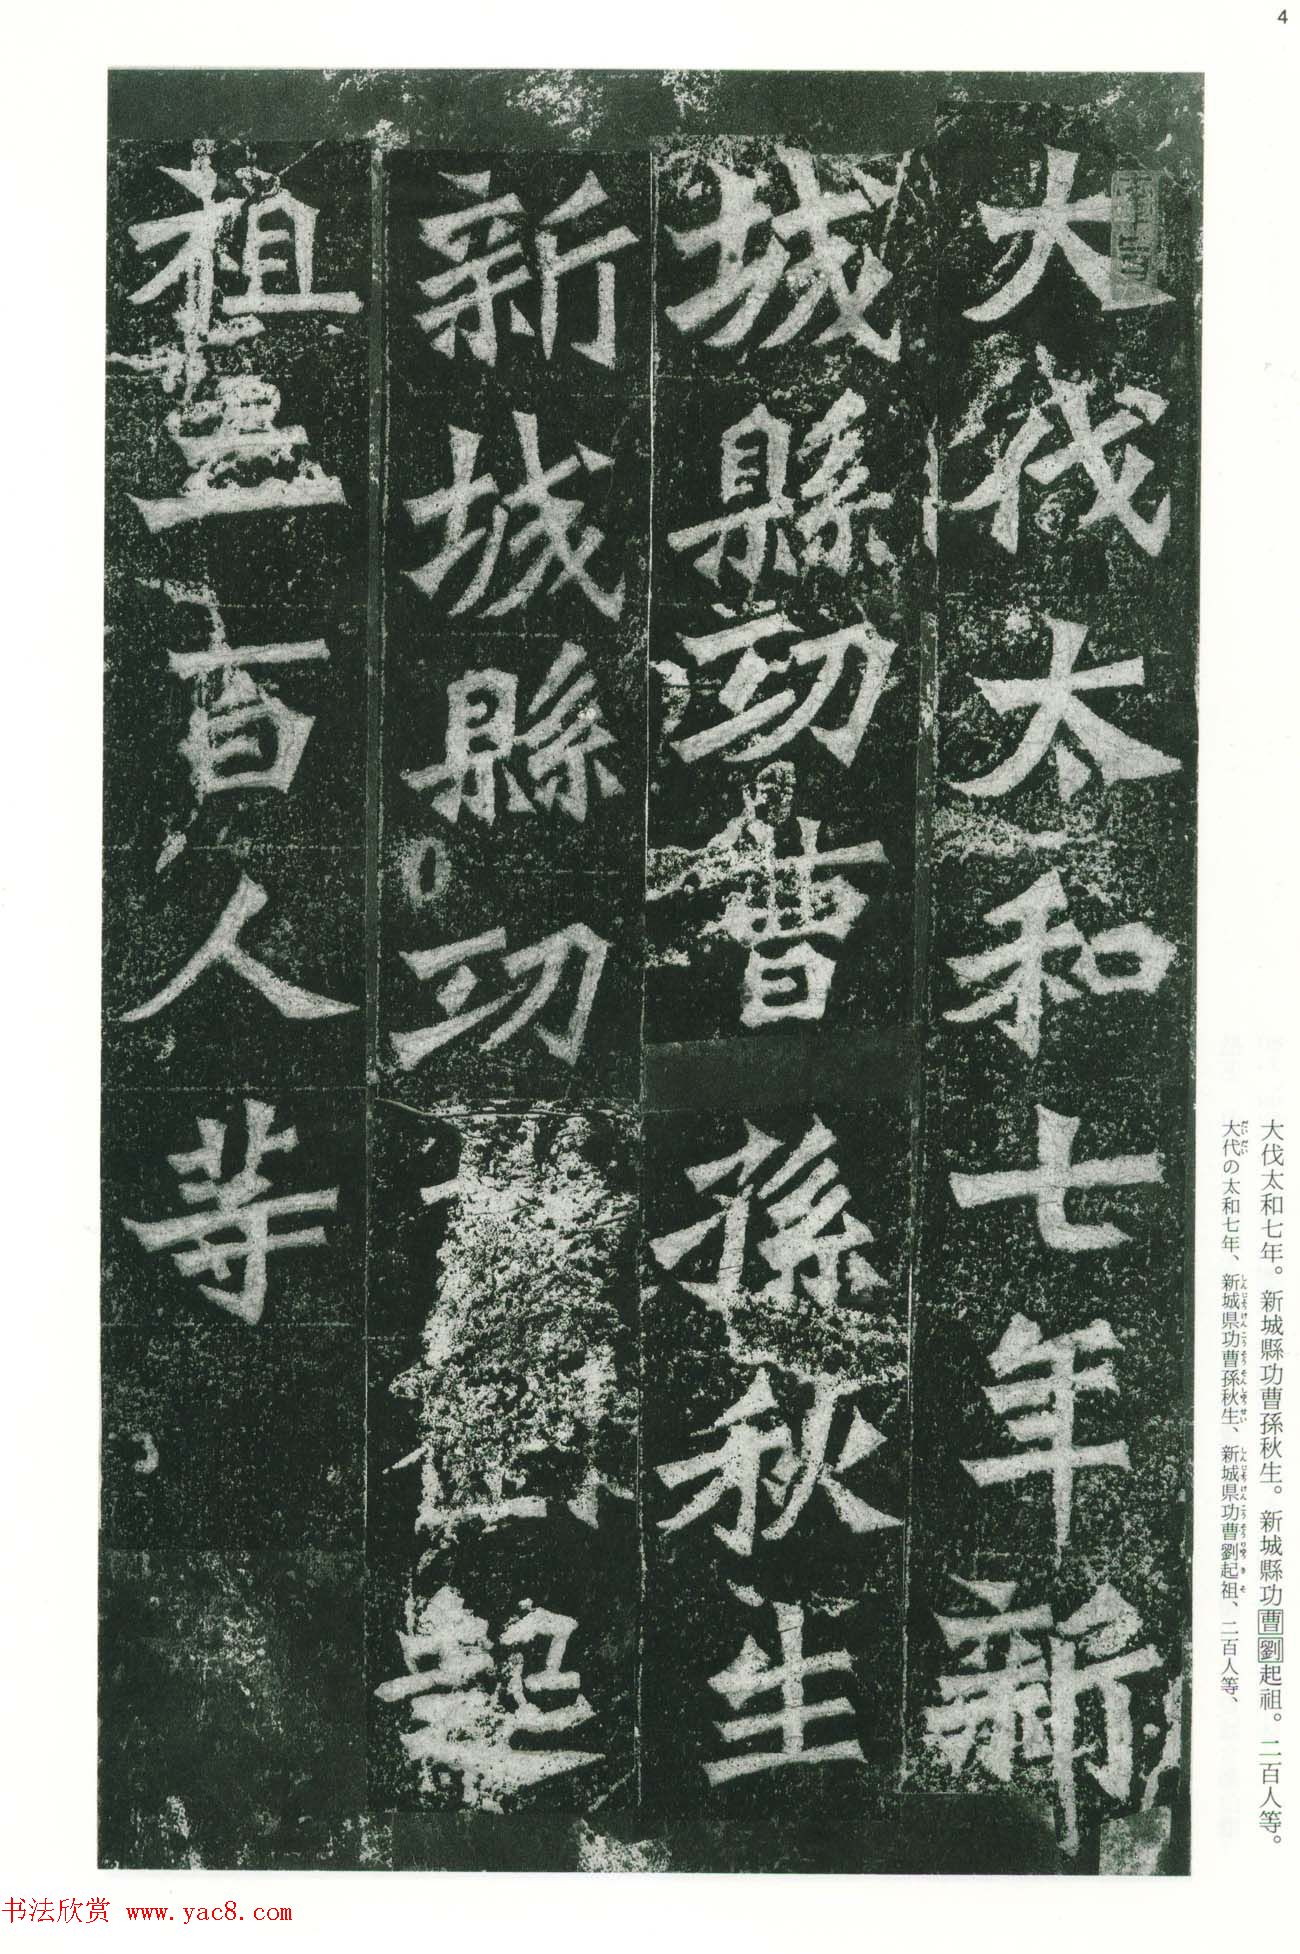 4
大伐太和七年新
城縣功曹孫秋生
新城縣功
起
祖二百人等
大伐太和七年。新城縣功曹孫秋生。新城縣功曹劉起祖。二百人等。
大代の太和七年、新城県功曹孫秋生、新城県功曹劉起祖、二百人等、
书法欣赏 www.yac8.com